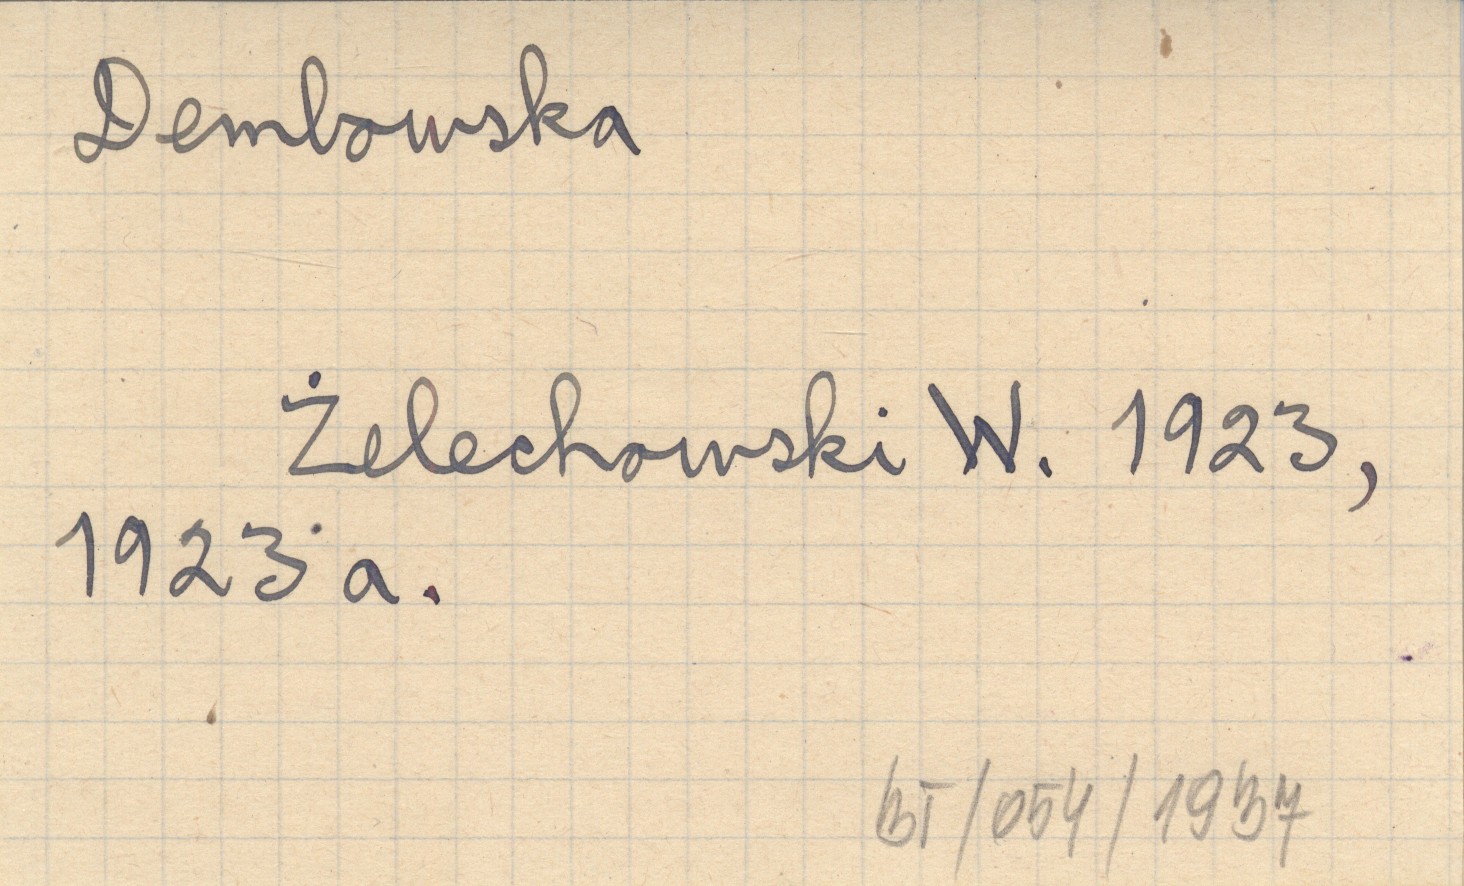 Dembowska
Żelechowski W. 1923,
1923 a.
BI/054/1937